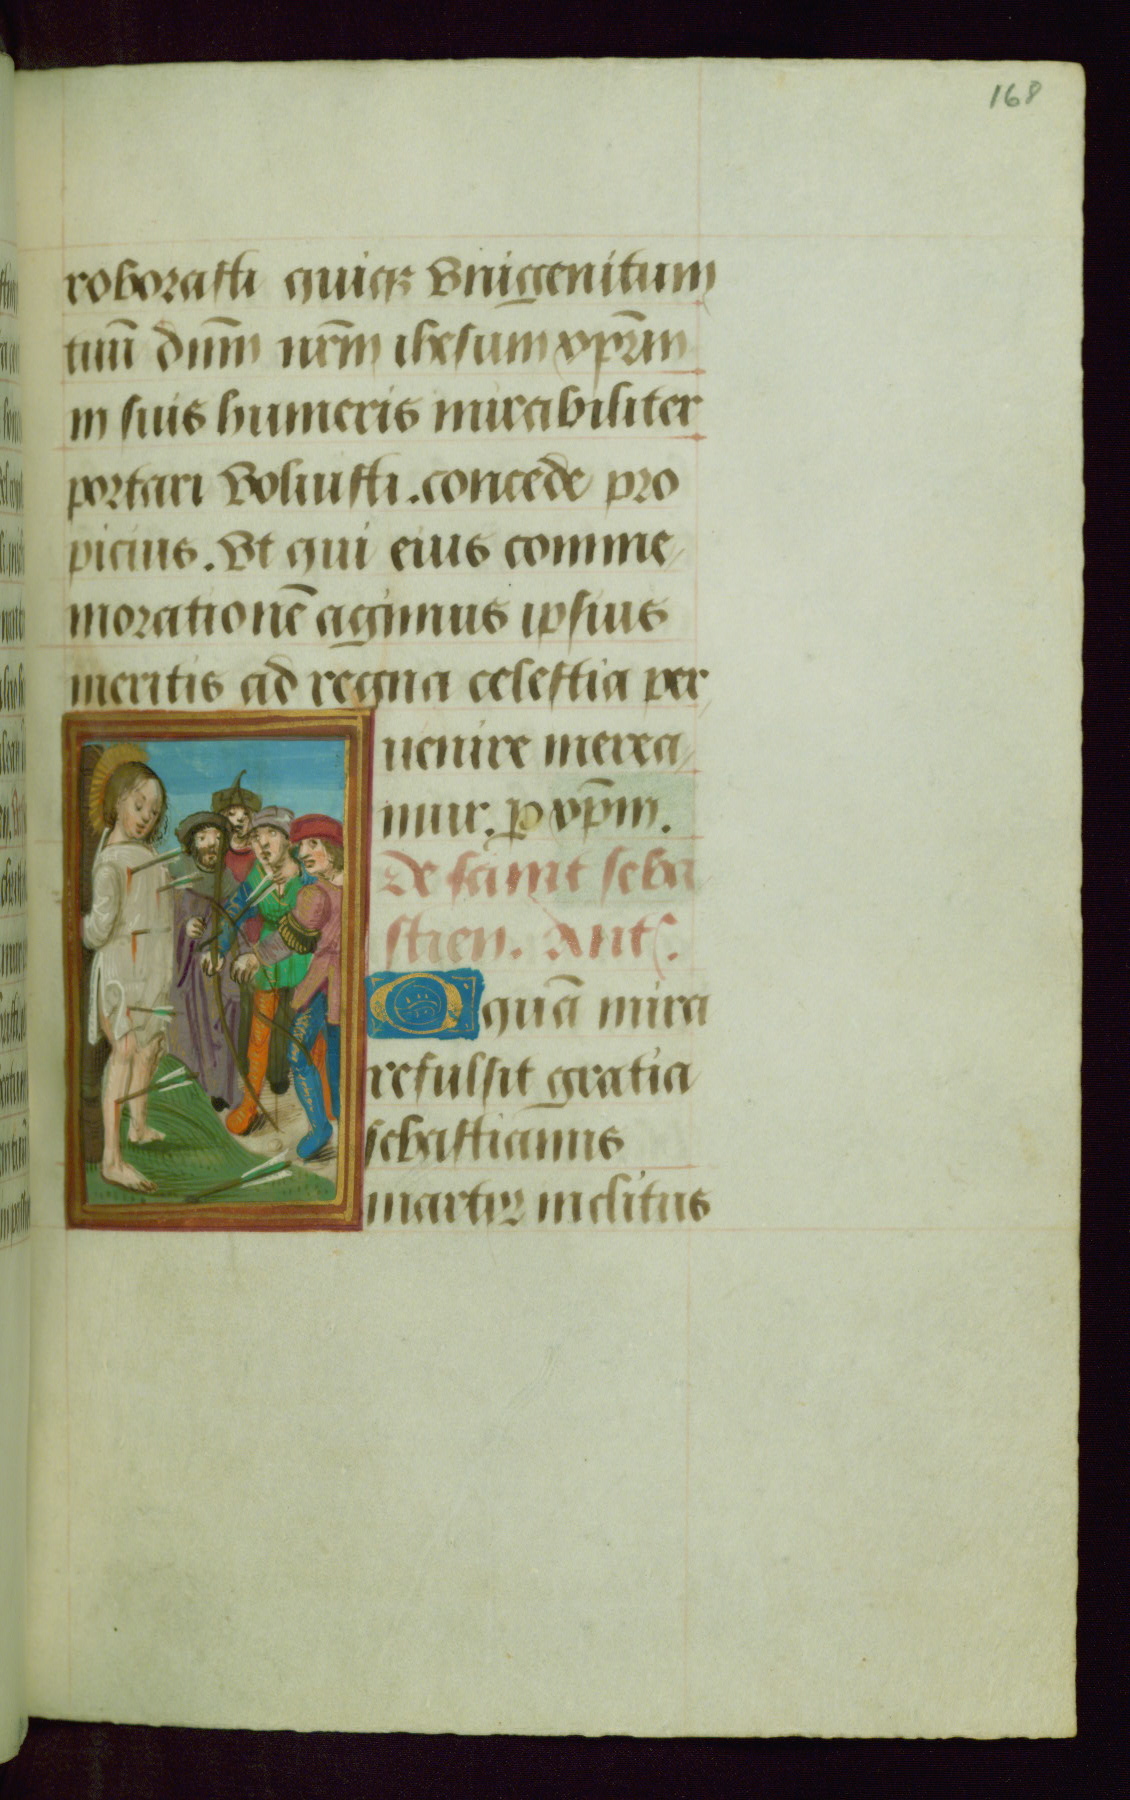 168
roborasti quiqꝫ Vnigenitum
tuū dūm nr̄m ihesum xp̄um
in suis humeris mirabiliter
portari voluisti. concede pro
picius. Vt qui eius comme
morationē agimus ipsius
meritis ad regna celestia per
uenire merea
mur. p xp̄m.
De saint seba
stien. Ant.
O quā mira
refulsit gratia
sebastianus
martyr inclitus